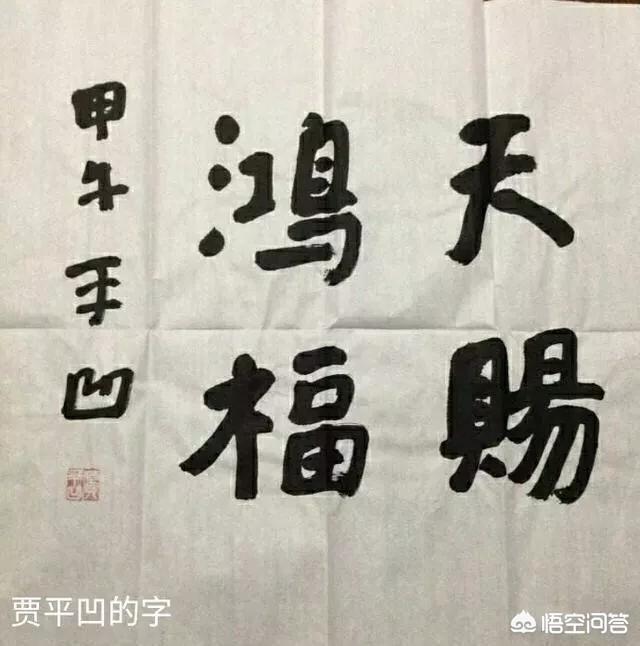 天赐
鸿福
甲午 平凹
贾平凹的字
悟空问答